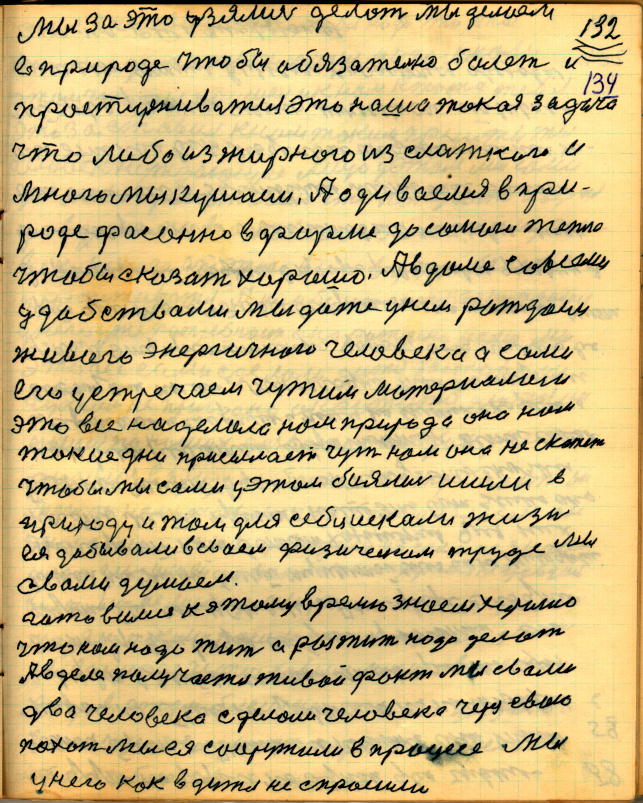 132
мы за это узялис делат мы делаем
134
в природе чтобы обязателно болет и
простуживатся это наша токая задача
что либо из жирного из слаткого и
много мы кушаем. А одиваемся в при-
роде фасонно в форме до самого тепло
чтобы сказат хорошо. А в доме со всеми
удобствами мы даже у нем рождаем
живого энергичного человека а сами
его устречаем чужим материалом
это все наделало нам природа она нам
токие дни присылает чут нам она не скажет
чтобы мы сами у этом боялис и шли в
природу и там для себя искали жизн
ея добывали в своем физическом труде мы
с вами думаем.
готовимся к этому времю знаем хорошо
что нам надо жит а разжит надо делат
А в деле получается живой факт мы с вами
два человека сделали человека через свою
похот мы ея соорудили в процесе мы
у него как в дитя не спросили